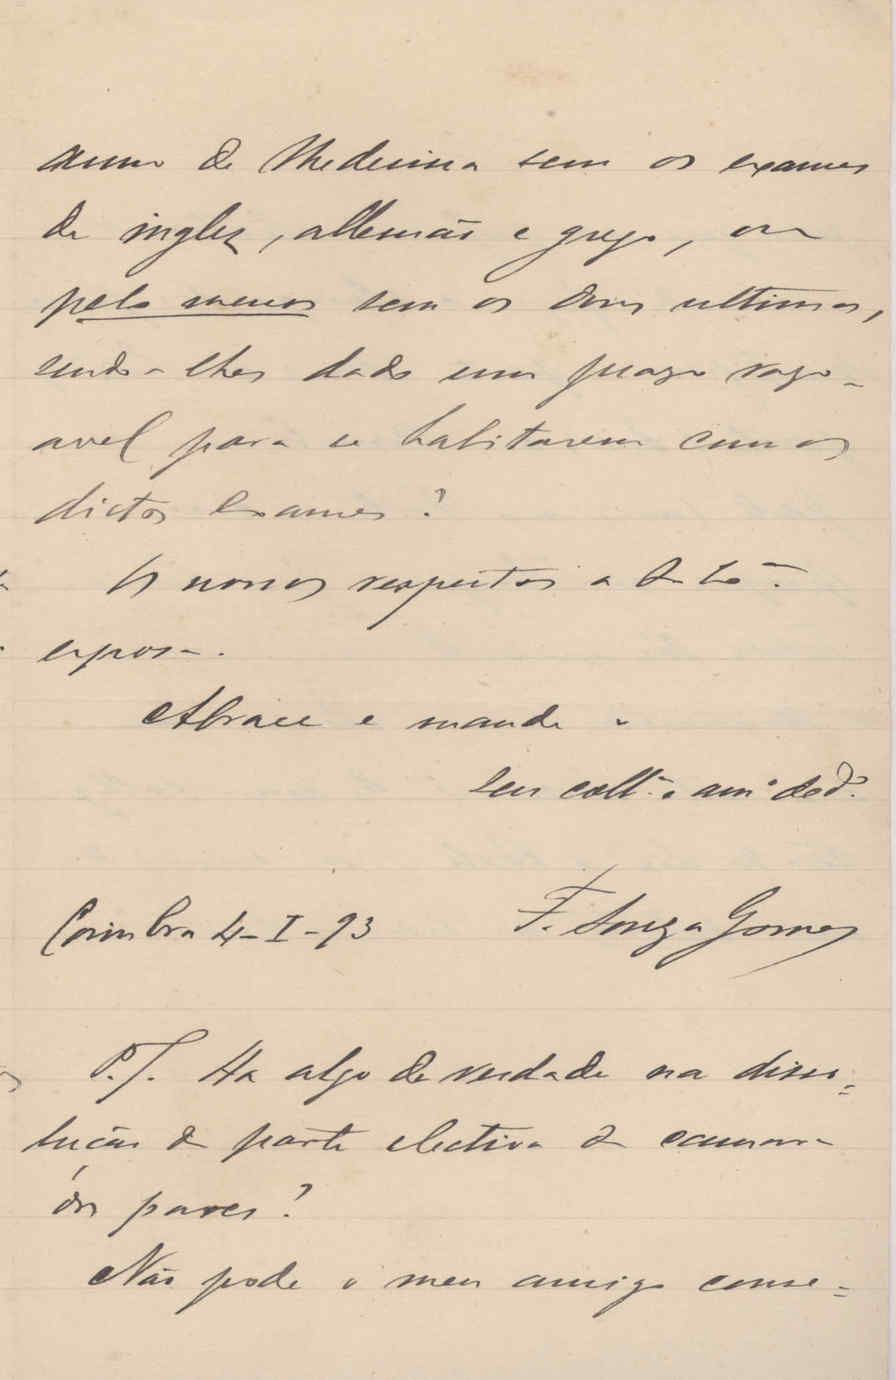 anno de Medecina sem os exames
de inglez, allemão e grego, ou
pelo menos sem os dous ultimos,
sendo-lhes dado um prazo razo-
avel para se habitarem com os
dictos exames?
Os nossos respeitos a Sua Exª.
esposa.
Abrace e mande o
seu coll.ª e am.º ded.º
Coimbra 4-I-93 F. Souza Gomes
P.S. Ha algo de verdade na disso-
lução da parte electiva da camara
dos pares?
Não pode o meu amigo conse-